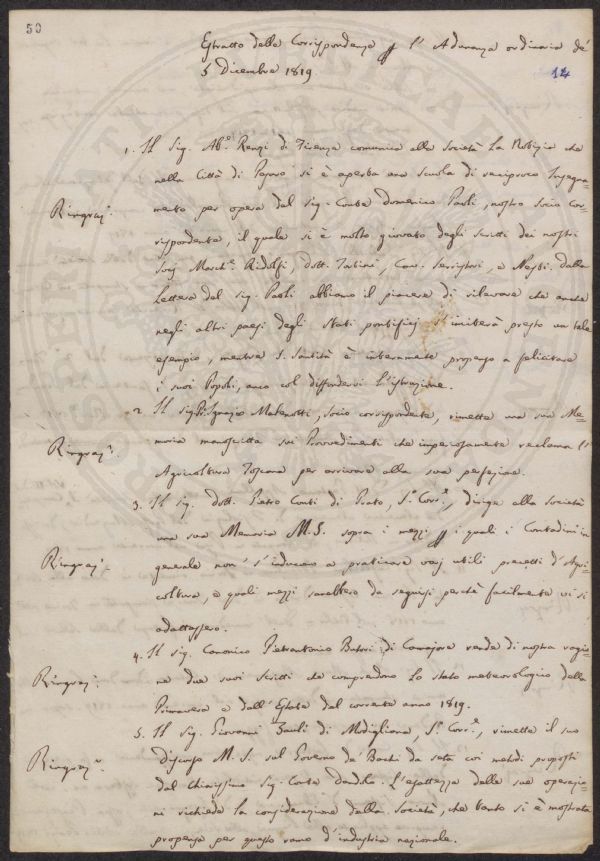 50
Estratto della Corrispondenza p l'Adunanza ordinaria de'
5 Dicembre 1819.
14
1. Il Sig. Ab.e Renzi di Firenze comunica alla Società la Notizia che
nella Città di Pesaro si è aperta una Scuola di reciproco Insegna-
Ringraz.
mento per opera del Sig. Conte Domenico Paoli, nostro Socio Cor-
rispondente, il quale si è molto giovato degli scritti dei nostri
Socj March.e Ridolfi, Dott. Tartini, Cav. Serristori, e Nesti. Dalla
Lettera del Sig. Paoli abbiamo il piacere di rilevare che anche
negli altri paesi degli Stati pontificj s'imiterà presto un tale
esempio, mentre S. Santità è interamente propenso a felicitare
i suoi Popoli, anco col diffondervi l'istruzione.
2. Il Sig. Ignazio Malenotti, Socio corrispondente, rimette una sua Me-
Ringraz.
moria manoscritta sui Provvedimenti che imperiosamente reclama l'
Agricoltura Toscana per arrivare alla sua perfezione.
3. Il Sig. Dott. Pietro Conti di Prato, S.o Corr.e, dirige alla Società
una sua Memoria M.S. sopra i mezzi p i quali i Contadini in
Ringraz.
generale non s'inducano a praticare varj utili precetti d'Agri-
coltura, e quali mezzi sarebbero da seguirsi perchè facilmente vi si
adattassero.
4. Il Sig. Canonico Pietrantonio Butori di Camajore rende di nostra ragio-
Ringraz.
ne due suoi Scritti che comprendono lo stato meteorologico della
Primavera e dell'Estate del corrente anno 1819.
5. Il Sig. Giovanni Zauli di Modigliana, S.o Corr.e, rimette il suo
Ringraz.
Discorso M.S. sul Governo de' Bachi da seta coi metodi proposti
dal Chiarissimo Sig. Conte Dandolo. L'esattezza delle sue operazio-
ni richiede la considerazione della Società, che tanto si è mostrata
propensa per questo ramo d'industria nazionale.